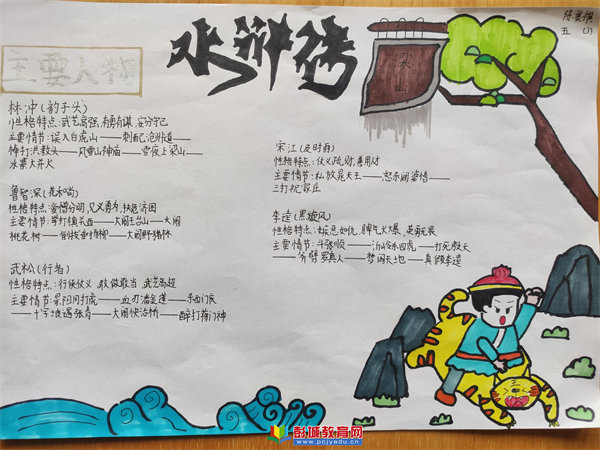 水浒传
梁
山
五 (1)
主要人物
林冲(豹子头)
性格特点:武艺高强、有勇有谋、安分守己
主要情节:误入白虎堂——刺配沧州道——
棒打洪教头——风雪山神庙——雪夜上梁山——
水寨大并火
鲁智深(花和尚)
性格特点:爱憎分明、见义勇为、扶危济困
主要情节:拳打镇关西——大闹五台山——大闹
桃花村——倒拔垂杨柳——大闹野猪林
武松(行者)
性格特点:行侠仗义、敢做敢当、武艺高超
主要情节:景阳冈打虎——血刃潘金莲——
——十字坡遇张青——大闹快活林——醉打蒋门神
宋江(及时雨)
性格特点:仗义疏财、善用人才
主要情节:私放晁天王——怒杀阎婆惜——
三打祝家庄
李逵(黑旋风)
性格特点:嫉恶如仇、脾气火爆、
主要情节:斗张顺——沂山杀四虎——打死殷天
——斧劈罗真人——梦闹天池——真假李逵
彭城教育网
www.pcjyedu.cn